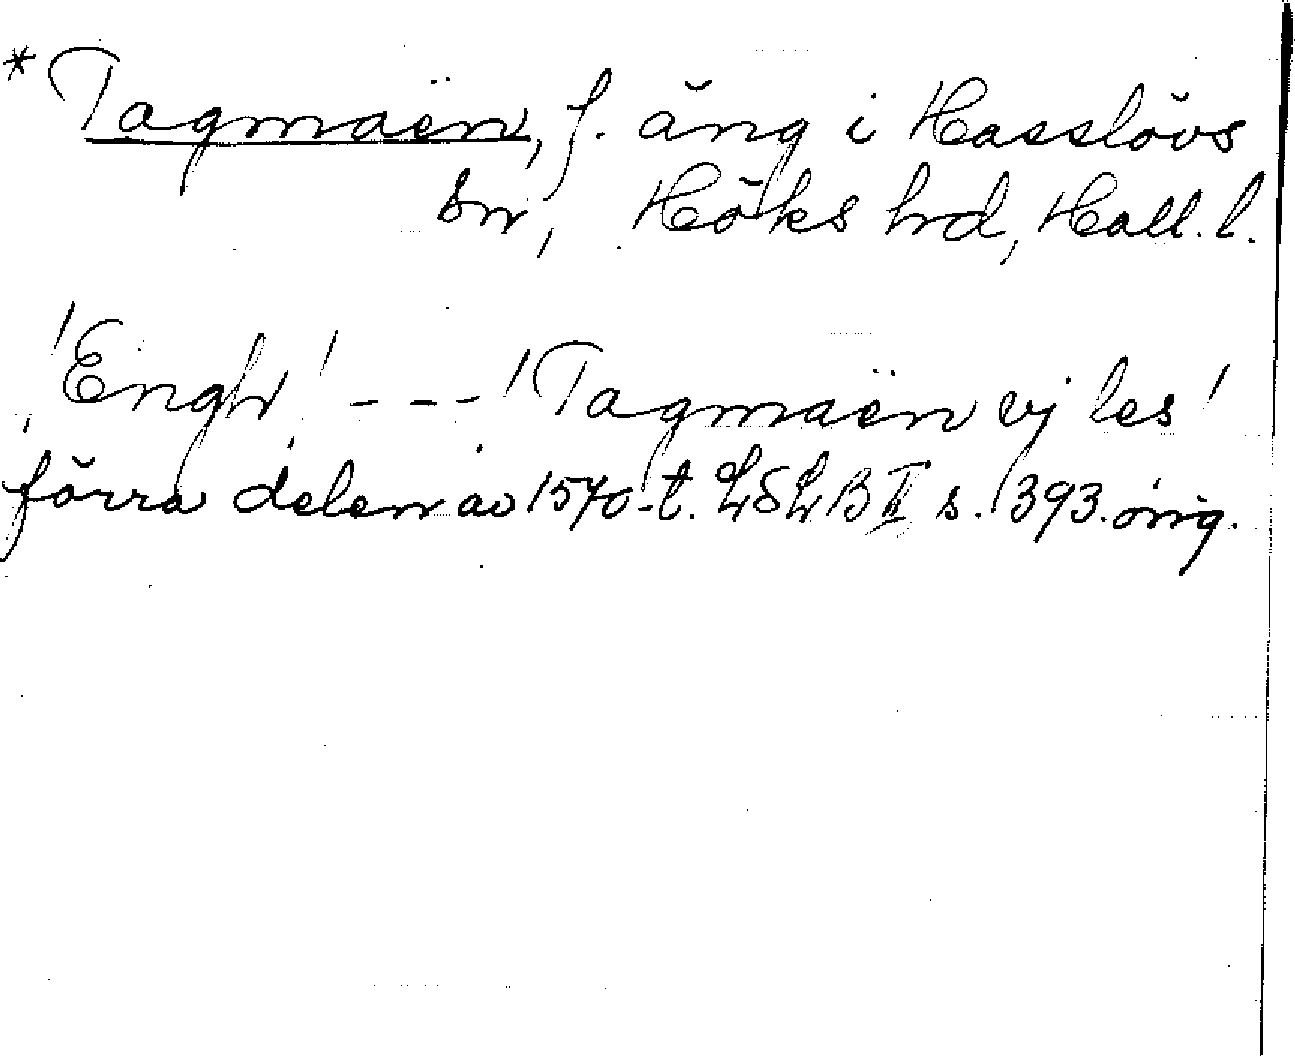 *Tagmaën, f. äng i Hasslövs
sn, Höks hrd, Hall. l.
'Engh' - - - 'Tagmaën vj les'
förra delen av 1570-t. LSLB II s. 393. orig.